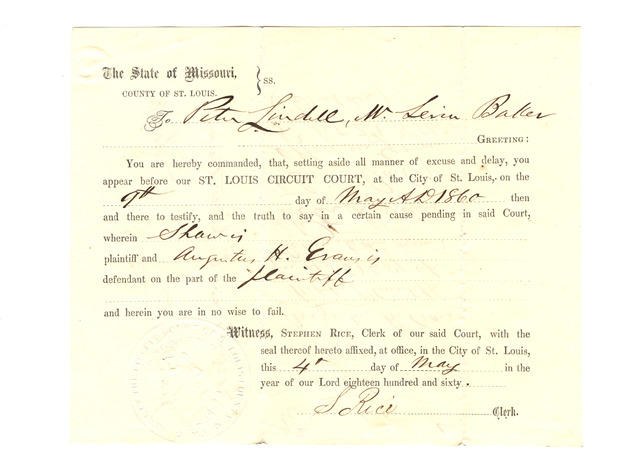 The State of Missouri, } ss.
COUNTY OF ST. LOUIS.
To Peter Lindell, Mr. Levin Baker
GREETING:
You are hereby commanded, that, setting aside all manner of excuse and delay, you
appear before our ST. LOUIS CIRCUIT COURT, at the City of St. Louis, on the
9th day of May A D 1860 then
and there to testify, and the truth to say in a certain cause pending in said Court,
wherein Shaw is
plaintiff and Augustus H. Evans is
defendant on the part of the plaintiff
and herein you are in no wise to fail.
Witness, STEPHEN RICE, Clerk of our said Court, with the
seal thereof hereto affixed, at office, in the City of St. Louis,
this 4th day of May in the
year of our Lord eighteen hundred and sixty.
S Rice Clerk.